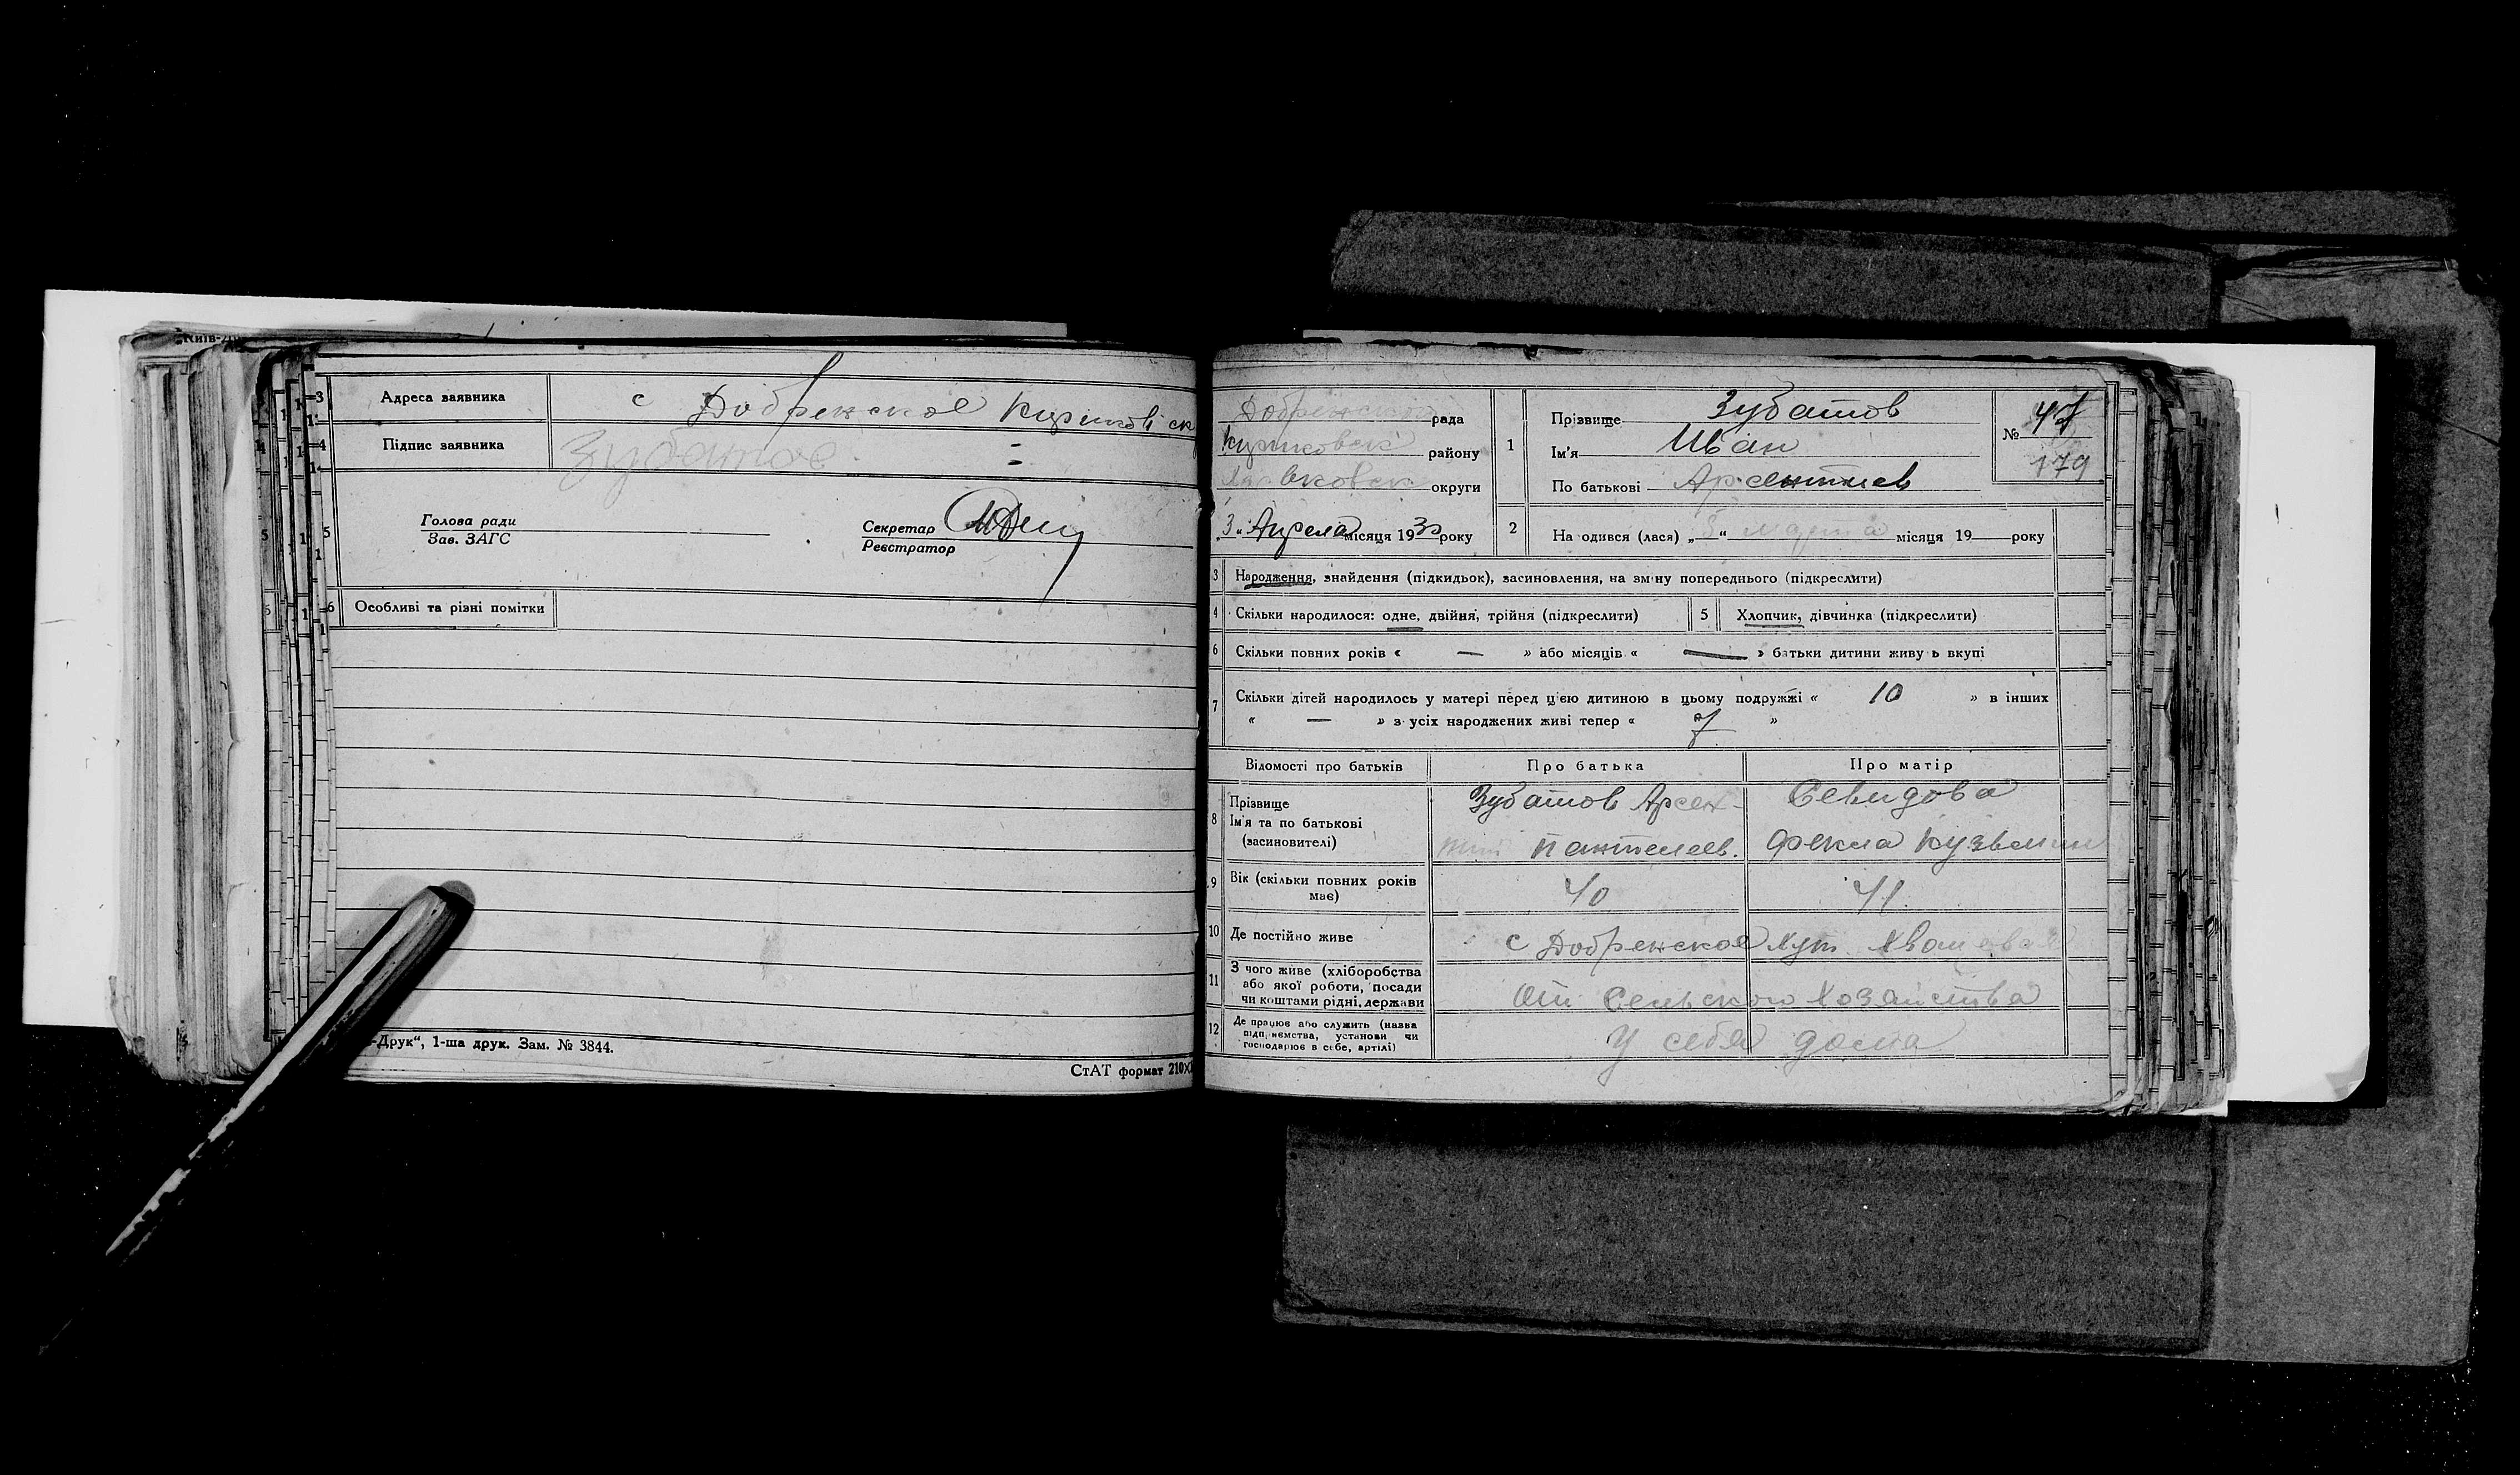 Адреса заявника с Добренское
Підпис заявника Зубатов
Голова ради
Зав. ЗАГС
Секретар
Реєстратор
6 Особливі та різні помітки
-Друк“, 1-ша друк. Зам. № 3844.
СтАТ формат 210х
рада
району
округи
„3“ Апреля місяця 1930 року
1 Прізвище Зубатов
Ім'я Иван
По батькові Арсентиев
№ 47
179
2 На одився (лася) „ “ марта місяця 19 року
3 Народження, знайдення (підкидьок), засиновлення, на зміну попереднього (підкреслити)
4 Скільки народилося: одне, двійня, трійня (підкреслити) 5 Хлопчик, дівчинка (підкреслити)
6 Скільки повних років « — » або місяців « — » батьки дитини живу ь вкупі
7 Скільки дітей народилось у матері перед цією дитиною в цьому подружжі « 10 » в інших
« — » з усіх народжених живі тепер « 7 »
Відомості про батьків Про батька Про матір
8 Прізвище
Ім'я та по батькові
(засновителі)
Зубатов Арсен-
тий Пантелеев.
Севидова
Фекла Кузьмин
9 Вік (скільки повних років
має)
40 41.
10 Де постійно живе с Добренское хут.
11 З чого живе (хліборобства
або якої роботи, посади
чи коштами рідні, держави
От Сельского Хозяйства
12 Де працює або служить (назва
підприємства, установи чи
господарює в себе, артілі)
У себя дома